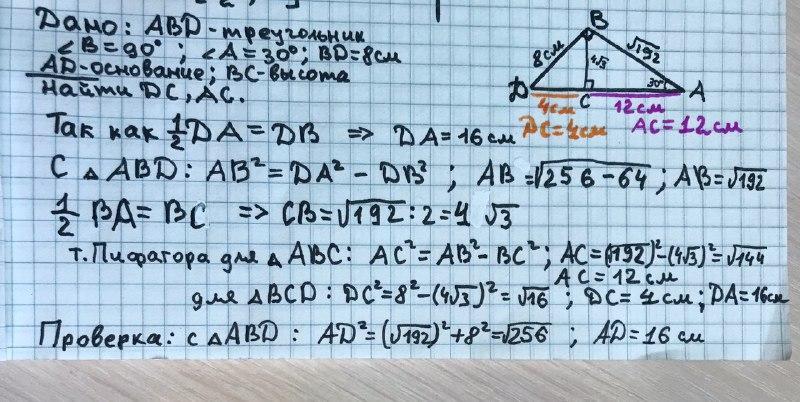 Дано: ABD-треугольник
∠B=90°; ∠A=30°; BD=8см
AD-основание; BC-высота
Найти DC, AC.
B
8см
4√3
√192
30°
D
C
A
4см
12см
DC=4см
AC=12см
Так как 1/2 DA = DB ⇒ DA=16см
С △ ABD: AB²=DA² - DB² ; AB=√256-64 ; AB=√192
1/2 BA=BC ⇒ CB=√192:2=4√3
т. Пифагора для △ ABC: AC²=AB²-BC² ; AC=(√192)²-(4√3)²=√144
AC=12см
для △BCD: DC²=8²-(4√3)²=√16 ; DC=4см; DA=16см
Проверка: с △ABD: AD²=(√192)²+8²=√256 ; AD=16 см